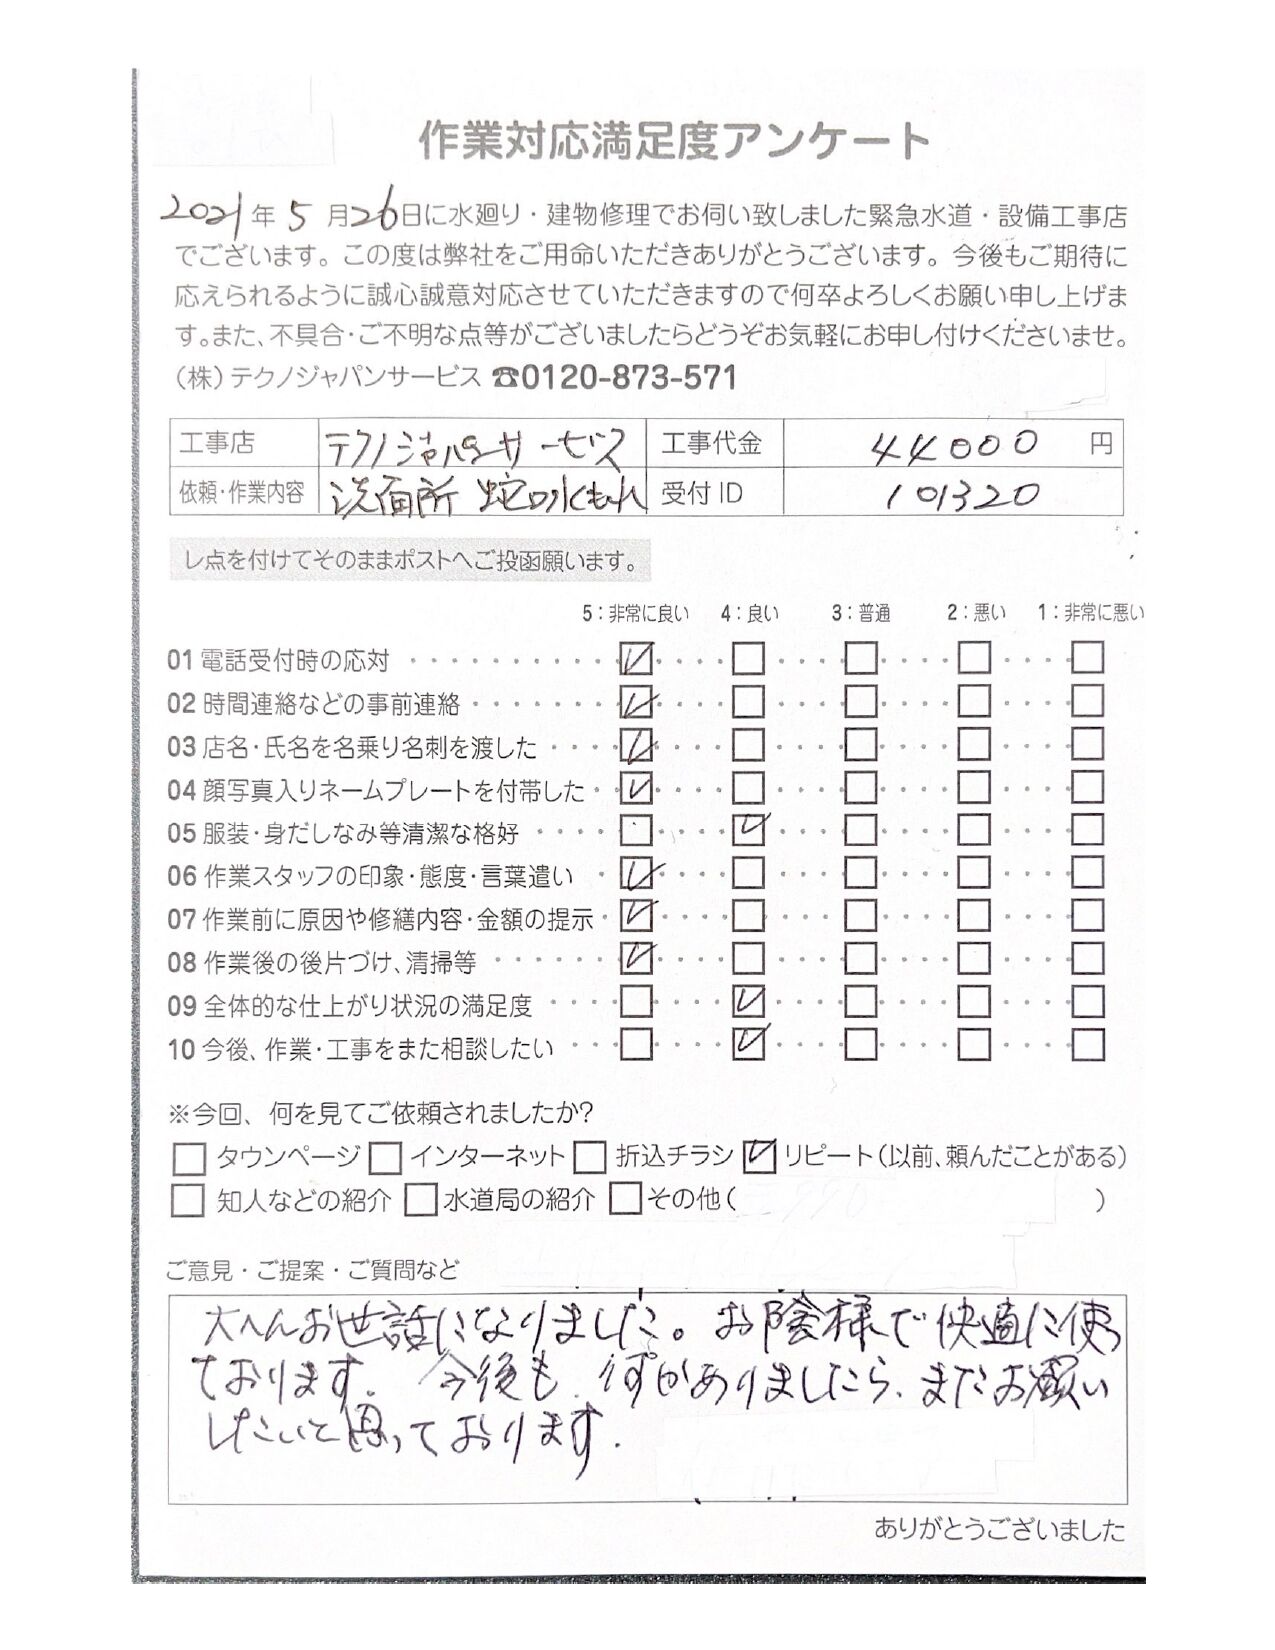 作業対応満足度アンケート
2021年 5月26日に水廻り・建物修理でお伺い致しました緊急水道・設備工事店
でございます。この度は弊社をご用命いただきありがとうございます。今後もご期待に
応えられるように誠心誠意対応させていただきますので何卒よろしくお願い申し上げま
す。また、不具合・ご不明な点等がございましたらどうぞお気軽にお申し付けくださいませ。
(株)テクノジャパンサービス ☎0120-873-571
工事店 テクノジャパンサービス 工事代金 44000 円
依頼・作業内容 洗面所 蛇口水もれ 受付ID 101320
レ点を付けてそのままポストへご投函願います。
5:非常に良い 4:良い 3:普通 2:悪い 1:非常に悪い
01 電話受付時の応対
02 時間連絡などの事前連絡
03 店名・氏名を名乗り名刺を渡した
04 顔写真入りネームプレートを付帯した
05 服装・身だしなみ等清潔な格好
06 作業スタッフの印象・態度・言葉遣い
07 作業前に原因や修繕内容・金額の提示
08 作業後の後片づけ、清掃等
09 全体的な仕上がり状況の満足度
10 今後、作業・工事をまた相談したい
※今回、何を見てご依頼されましたか?
タウンページ インターネット 折込チラシ リピート(以前、頼んだことがある)
知人などの紹介 水道局の紹介 その他( )
ご意見・ご提案・ご質問など
大へんお世話になりました。お陰様で快適に使っ
ております。今後も、何かありましたら、またお願い
したいと思っております.
ありがとうございました